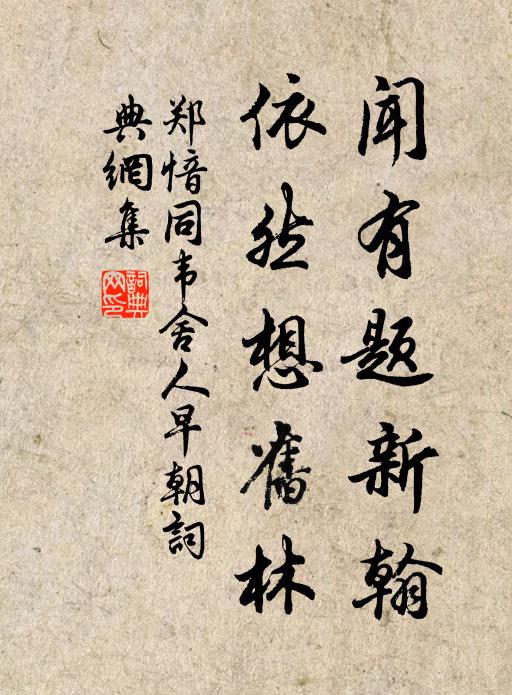 闻有题新翰
依然想舊林
郑愔同韦舍人早朝詞
典網集
詞典网印